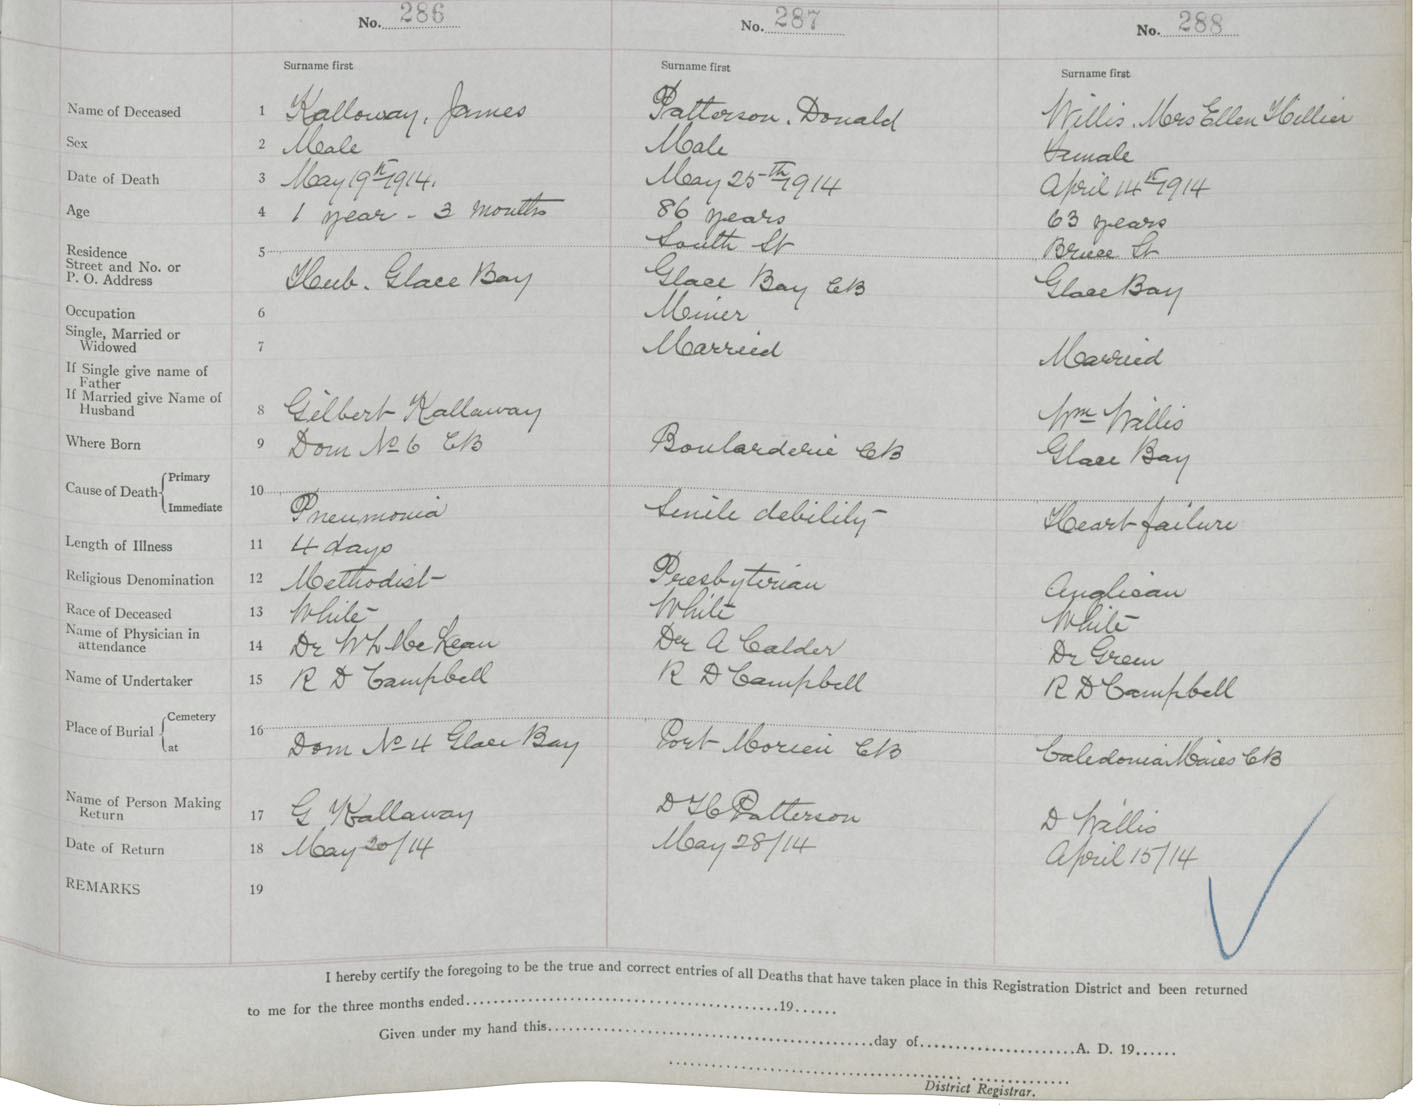 No. 286 No. 287 No. 288
Surname first Surname first Surname first
Name of Deceased 1 Kalloway, James Patterson, Donald Willis, Mrs Ellen Hillier
Sex 2 Male Male Female
Date of Death 3 May 19th 1914. May 25th 1914 April 14th 1914
Age 4 1 year - 3 months 86 years 63 years
Residence 5 South St Bruce St
Street and No. or
P. O. Address Hub. Glace Bay Glace Bay CB Glace Bay
Occupation 6 Miner
Single, Married or
Widowed 7 Married Married
If Single give name of
Father
If Married give Name of
Husband 8 Gilbert Kallaway Wm Willis
Where Born 9 Dom No 6 CB Boularderie CB Glace Bay
Cause of Death Primary
10
Immediate Pneumonia Senile debility Heart failure
Length of Illness 11 4 days
Religious Denomination 12 Methodist Presbyterian Anglican
Race of Deceased 13 White White White
Name of Physician in
attendance 14 Dr W L McKean Dr A Calder Dr Green
Name of Undertaker 15 R D Campbell R D Campbell R D Campbell
Place of Burial Cemetery
16
at Dom No 4 Glace Bay Port Morien CB Caledonia Mines CB
Name of Person Making
Return 17 G Kallaway D H Patterson D Willis
Date of Return 18 May 20/14 May 28/14 April 15/14
REMARKS 19
I hereby certify the foregoing to be the true and correct entries of all Deaths that have taken place in this Registration District and been returned
to me for the three months ended 19......
Given under my hand this day of A. D. 19......
District Registrar.